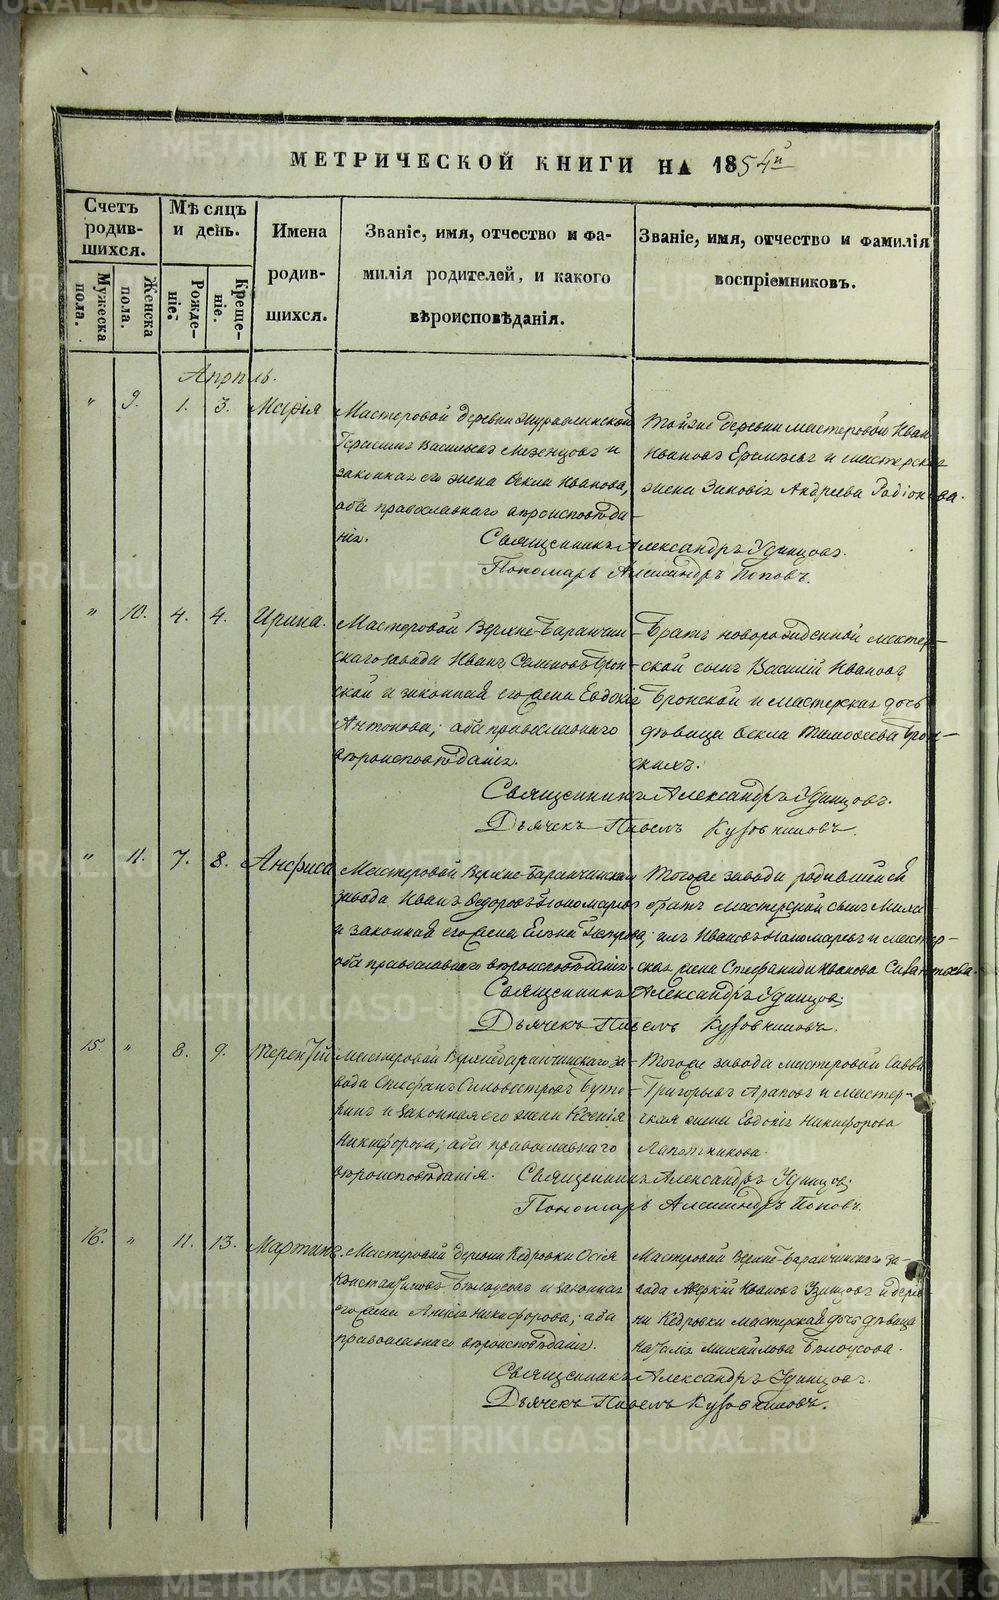 МЕТРИЧЕСКОЙ КНИГИ НА 1854й
Счетъ родив-шихся.
Мужеска пола.
Женска пола.
Мѣсяцъ и день.
Рожде-ніе.
Креще-ніе.
Имена родив-шихся.
Званіе, имя, отчество и фа-
милія родителей, и какого
вѣроисповѣданія.
Званіе, имя, отчество и фамилія
воспріемниковъ.
Апрѣль.
" 9. 1. 3. Марія
Мастеровой деревни Журавлинской
Герасимъ Васильевъ Мезенцовъ и
законная его жена Ѳекла Иванова,
оба православнаго вѣроисповѣда-
нія.
Тойже деревни мастеровой Иванъ
Ивановъ Еремѣевъ и мастерская
жена Зиновія Андреева Родіонова.
Священникъ Александръ Удинцовъ.
Пономарь Александръ Поповъ.
" 10. 4. 4. Ирина.
Мастеровой Верхне-Баранчин-
скаго завода Иванъ Семеновъ Брон-
ской и законная его жена Евдокія
Антонова; оба православнаго
вѣроисповѣданія.
Братъ новорожденной мастер-
ской сынъ Василій Ивановъ
Бронской и мастерская дочь
дѣвица Ѳекла Тимоѳеева Брон-
скихъ.
Священникъ Александръ Удинцовъ.
Дьячекъ Павелъ Кузовниковъ.
" 11. 7. 8. Анфиса
Мастеровой Верхне-Баранчинскаго
завода Иванъ Ѳедоровъ Пономаревъ
и законная его жена Елена Петрова;
оба православнаго вѣроисповѣданія.
Тогоже завода родившейся
братъ мастерской сынъ Миха-
илъ Ивановъ Пономаревъ и мастер-
ская жена Стефанида Иванова
Священникъ Александръ Удинцовъ.
Дьячекъ Павелъ Кузовниковъ.
15. " 8. 9. Терентій
Мастеровой Верхнебаранчинскаго за-
вода Стефанъ Сильвестровъ Буто-
ринъ и законная его жена Ксенія
Никифорова; оба православнаго
вѣроисповѣданія.
Тогоже завода мастеровой Савва
Григорьевъ Араповъ и мастер-
ская жена Евдокія Никифорова
Лапотникова.
Священникъ Александръ Удинцовъ.
Пономарь Александръ Поповъ.
16. " 11. 13. Мартинъ
Мастеровой деревни Кедровки Осія
Константиновъ Бѣлоусовъ и законная
его жена Анисія Никифорова; оба
православнаго вѣроисповѣданія.
Мастеровой Верхне-Баранчинскаго за-
вода Аверкій Ивановъ Удинцовъ и дерев-
ни Кедровки мастерская дочь дѣвица
Наталія Михайлова Бѣлоусова.
Священникъ Александръ Удинцовъ.
Дьячекъ Павелъ Кузовниковъ.
METRIKI.GASO-URAL.RU